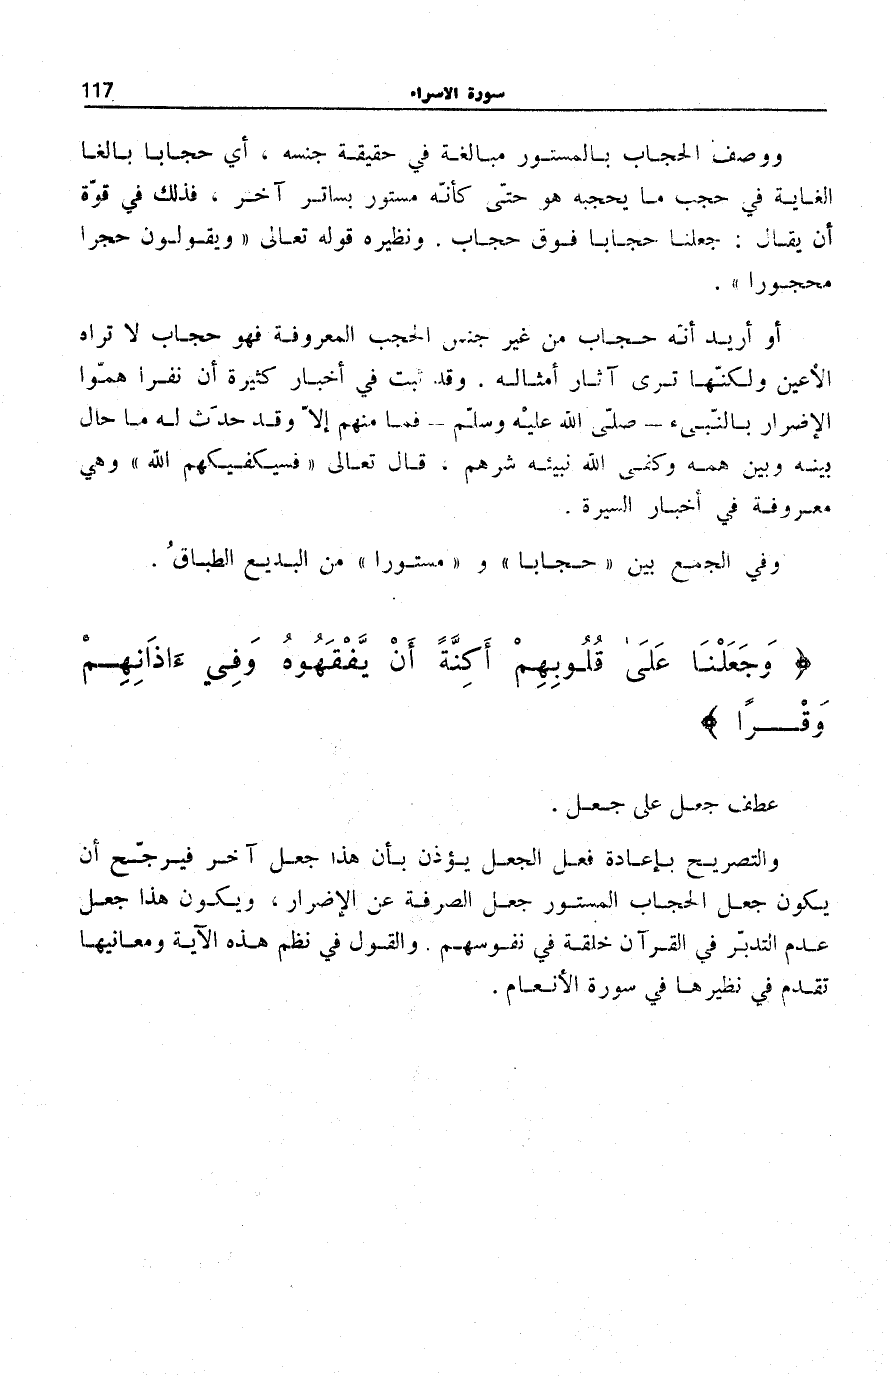 117
سورة الاسراء
ووصف الحجاب بالمستور مبالغة في حقيقة جنسه ، أي حجابا بالغا
الغاية في حجب ما يحجبه هو حتّى كأنّه مستور بساتر آخر ، فذلك في قوّة
أن يقال : جعلنا حجابا فوق حجاب . ونظيره قوله تعالى « ويقولون حجرا
محجورا » .
أو أريد أنّه حجاب من غير جنس الحجب المعروفة فهو حجاب لا تراه
الأعين ولكنّها ترى آثار أمثاله . وقد ثبت في أخبار كثيرة أن نفرا همّوا
الإضرار بالنّبيء — صلّى الله عليْه وسلّم — فما منهم إلاّ وقد حدَث له ما حال
بينه وبين همه وكفى الله نبيئه شرهم ، قال تعالى « فسيكفيكهم الله » وهي
معروفة في أخبار السيرة .
وفي الجمع بين « حجابا » و « مستورا » من البديع الطباقُ .
﴿ وَجَعَلْنَا عَلَىٰ قُلُوبِهِمْ أَكِنَّةً أَنْ يَّفْقَهُوهُ وَفِي ءَاذَانِهِمْ
وَقْرًا ﴾
عطف جعل على جعل .
والتصريح بإعادة فعل الجعل يؤذن بأن هذا جعل آخر فيرجّح أن
يكون جعل الحجاب المستور جعل الصرفة عن الإضرار ، ويكون هذا جعل
عدم التدبّر في القرآن خلقة في نفوسهم . والقول في نظم هذه الآية ومعانيها
تقدم في نظيرها في سورة الأنعام .